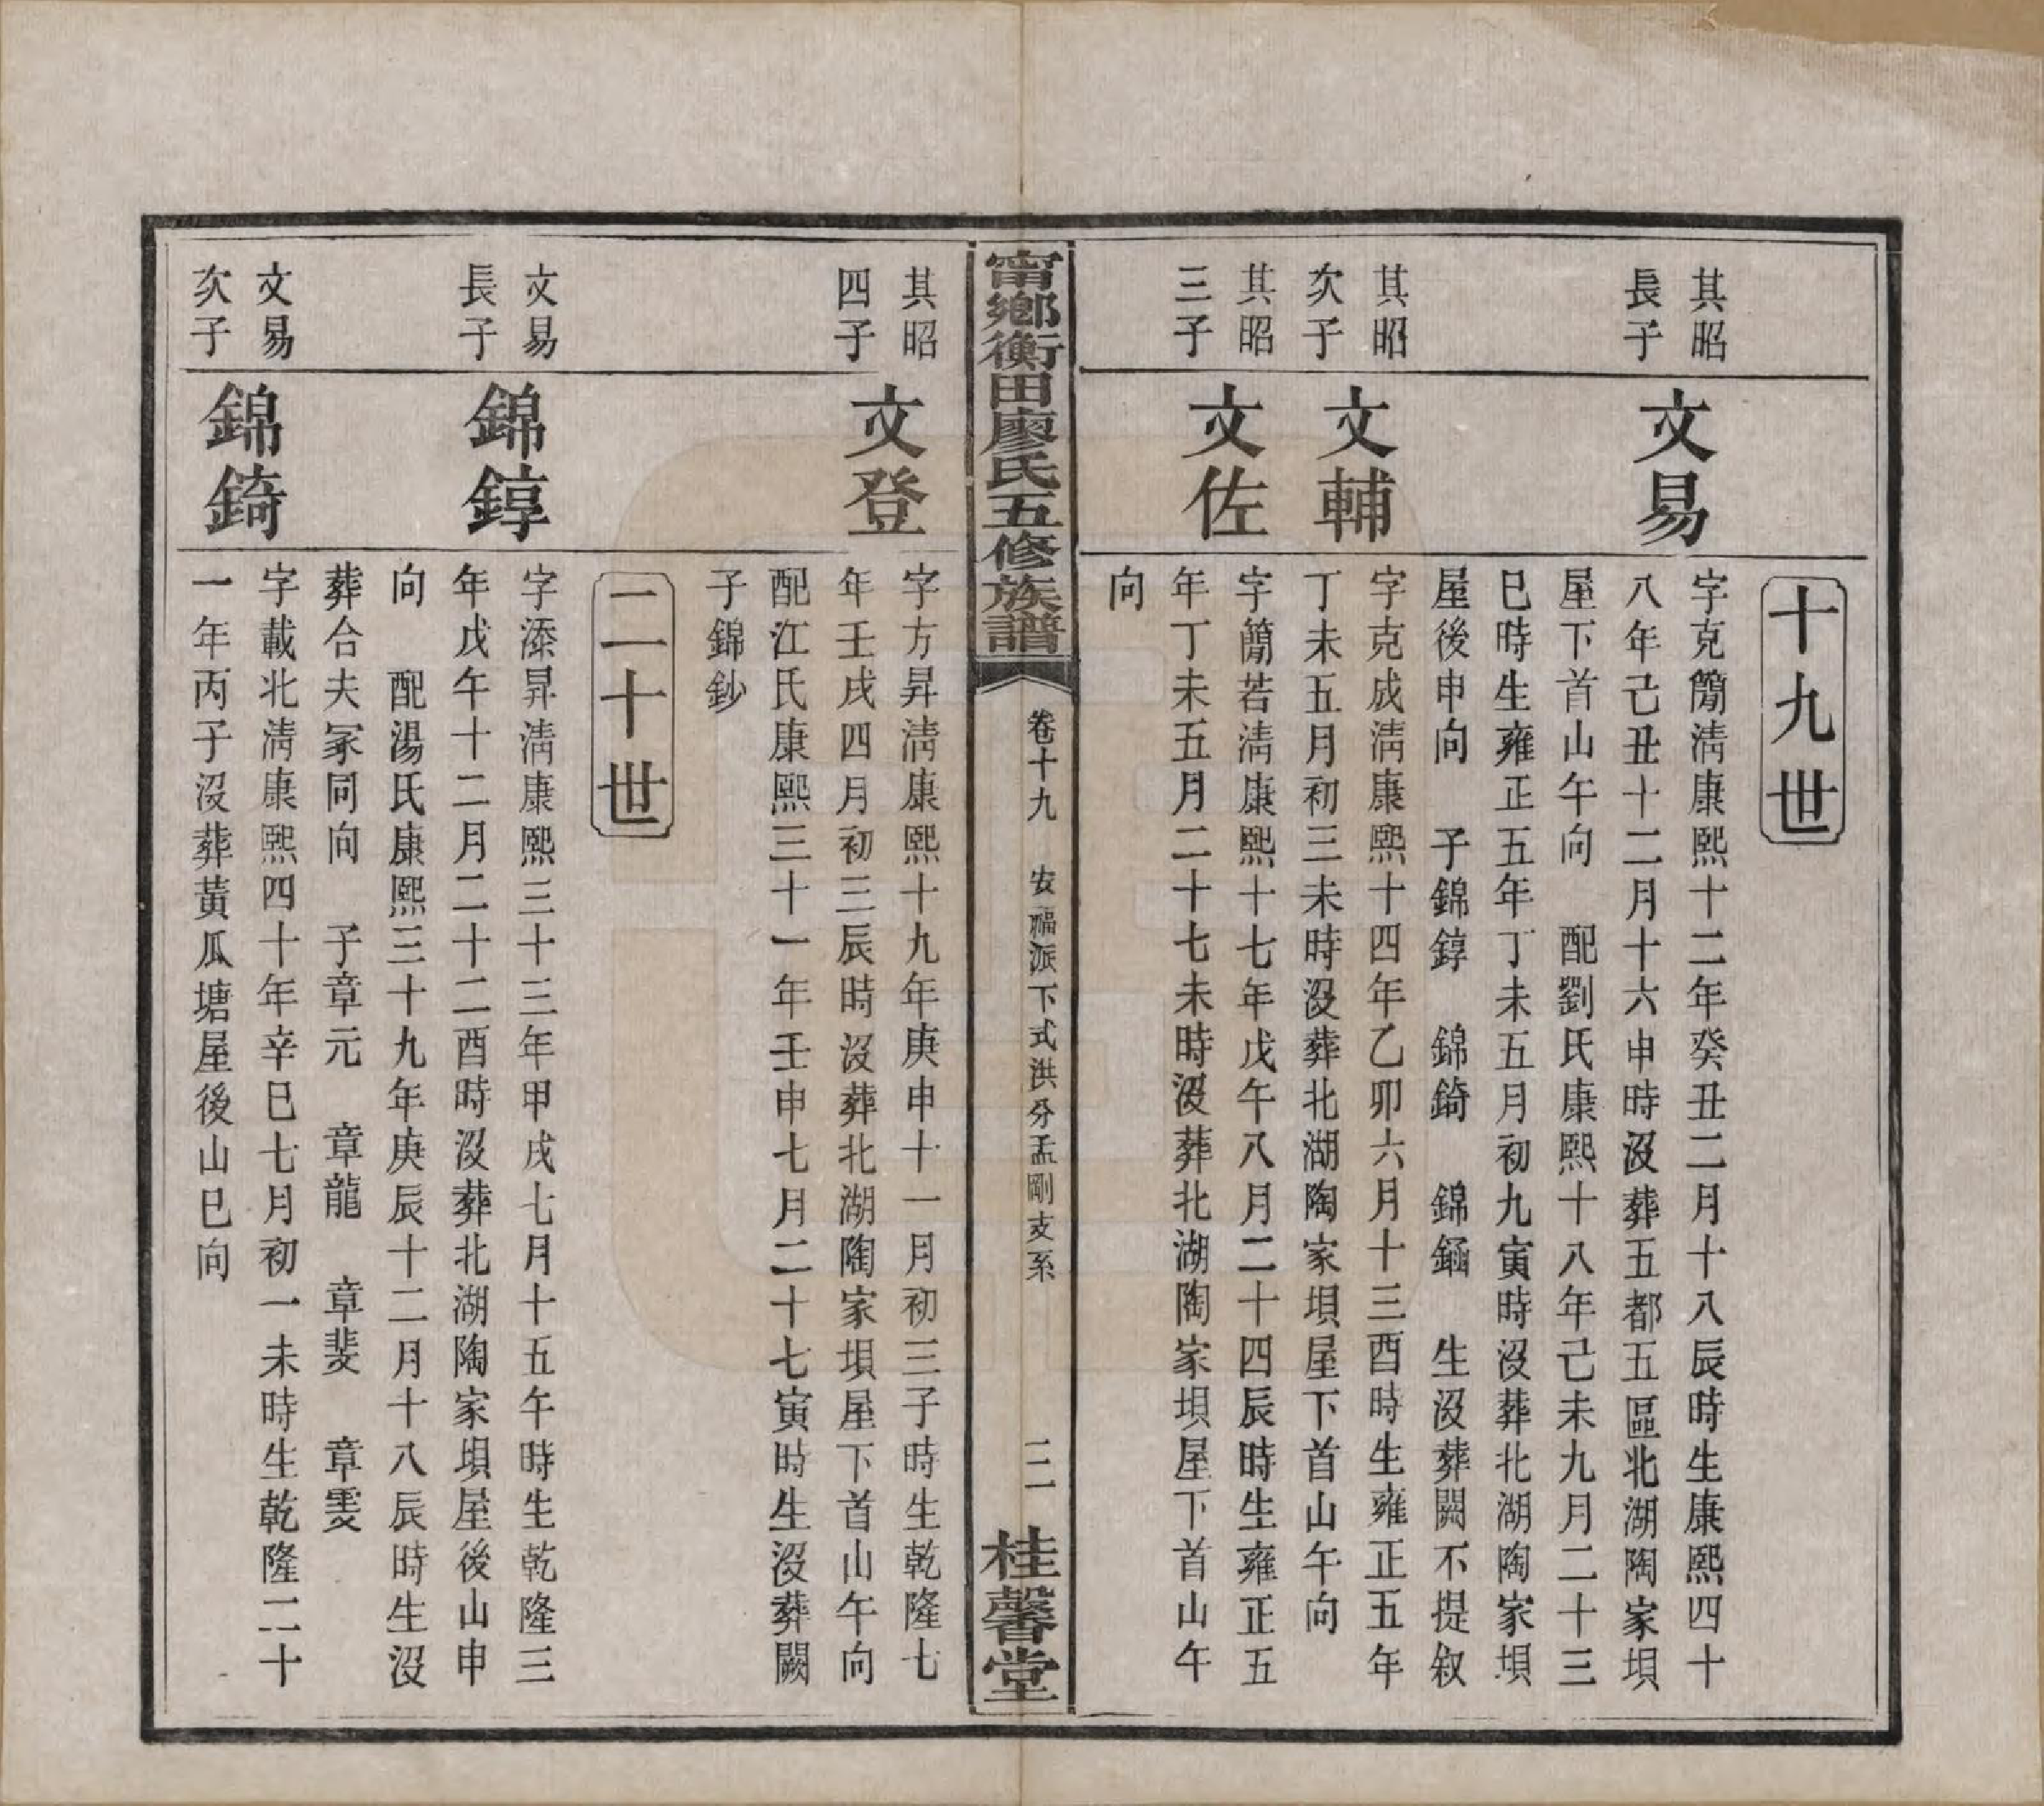 十九世
其昭
長子
文易
字克簡淸康熙十二年癸丑二月十八辰時生康熙四十
八年己丑十二月十六申時沒葬五都五區北湖陶家垻
屋下首山午向　配劉氏康熙十八年己未九月二十三
巳時生雍正五年丁未五月初九寅時沒葬北湖陶家垻
屋後申向　子錦錞　錦錡　錦鏀　生沒葬闕不提叙
其昭
次子
文輔
字克成淸康熙十四年乙卯六月十三酉時生雍正五年
丁未五月初三未時沒葬北湖陶家垻屋下首山午向
其昭
三子
文佐
字簡若淸康熙十七年戊午八月二十四辰時生雍正五
年丁未五月二十七未時沒葬北湖陶家垻屋下首山午
向
甯鄉衡田廖氏五修族譜
卷十九　安福派下式洪分孟剛支系
二
桂馨堂
其昭
四子
文登
字方昇淸康熙十九年庚申十一月初三子時生乾隆七
年壬戌四月初三辰時沒葬北湖陶家垻屋下首山午向
配江氏康熙三十一年壬申七月二十七寅時生沒葬闕
子錦鈔
二十世
文易
長子
錦錞
字添昇淸康熙三十三年甲戌七月十五午時生乾隆三
年戊午十二月二十二酉時沒葬北湖陶家垻屋後山申
向　配湯氏康熙三十九年庚辰十二月十八辰時生沒
葬合夫冢同向　子章元　章龍　章斐　章雯
文易
次子
錦錡
字載北淸康熙四十年辛巳七月初一未時生乾隆二十
一年丙子沒葬黃瓜塘屋後山巳向